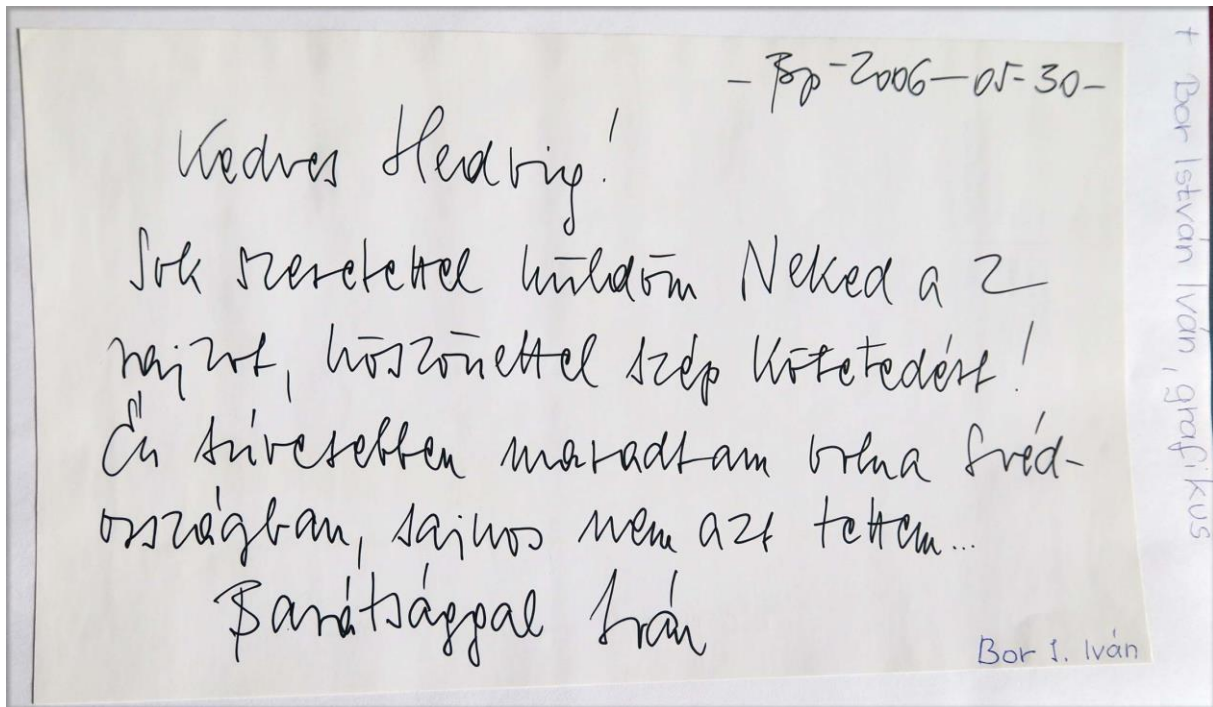 - Bp - 2006 - 05 - 30 -
Kedves Hedvig!
Sok szeretettel küldöm Neked a 2
rajzot, köszönettel szép kötetedért!
Én szívesebben maradtam volna Svéd-
országban, sajnos nem azt tettem...
Barátsággal Iván
Bor I. Iván
+ Bor István Iván, grafikus